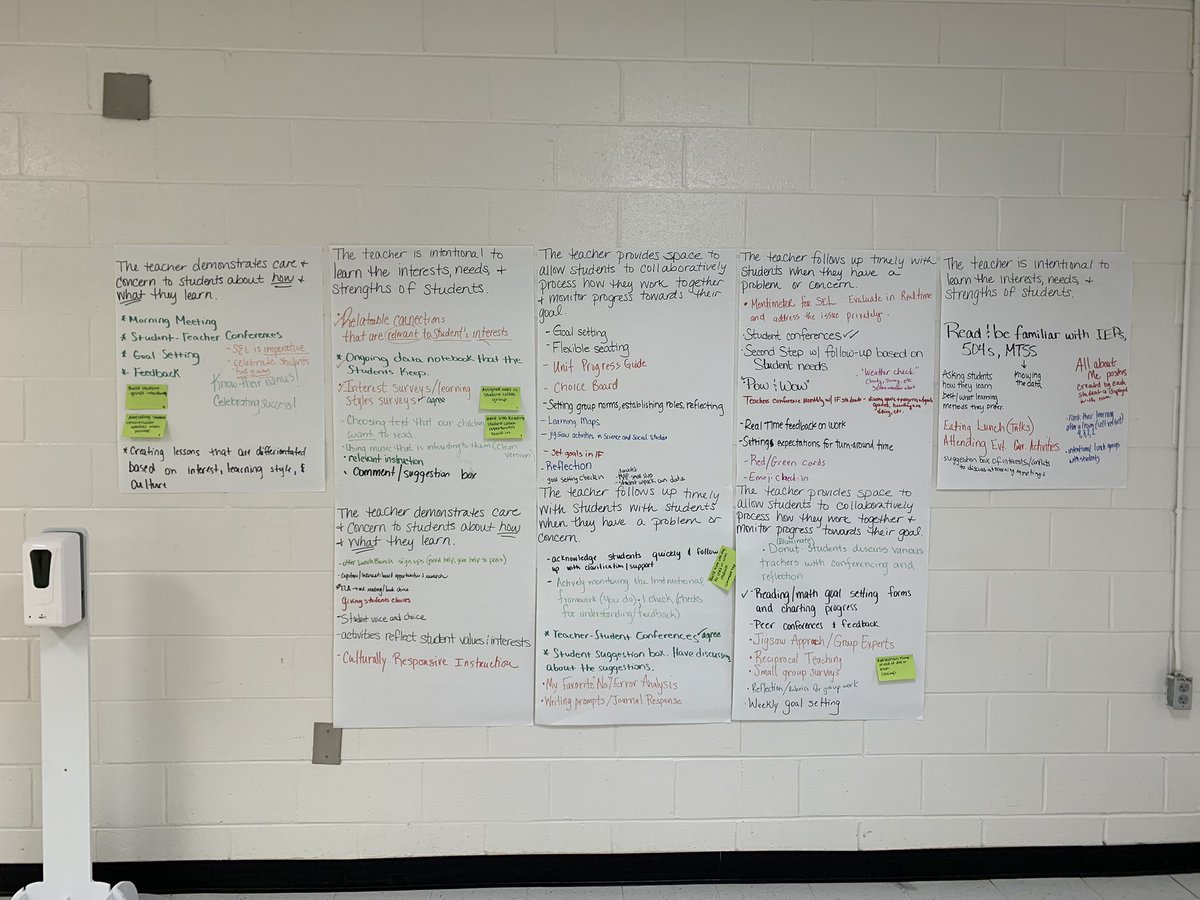 The teacher demonstrates care +
concern to students about how +
what they learn.
* Morning Meeting
* Student-Teacher Conferences
* Goal Setting
- SEL is imperative
- celebrate students
* Feedback
Know their names!
Celebrating success!
* Creating lessons that are differentiated
based on interest, learning style, &
culture
The teacher is intentional to
learn the interests, needs, +
strengths of students.
Relatable connections
that are relevant to student's interests
* Ongoing data notebook that the
students keep.
* Interest surveys/learning
styles surveys ✓ agree
- Choosing text that our children
want to read
- Using music that is interesting to them (clean
version)
• relevant instruction
• Comment/suggestion box
The teacher provides space to
allow students to collaboratively
process how they work together
+ monitor progress towards their
goal.
- Goal setting
- Flexible seating
- Unit Progress Guide
- Choice Board
- Setting group norms, establishing roles, reflecting
- Learning Maps
- jigsaw activities in Science and Social Studies
- Set goals in IF
- Reflection
goal setting check in
The teacher follows up timely with
students when they have a
problem or concern.
• Mentimeter for SEL Evaluate in Real time
and address the issue privately.
- Student conferences ✓✓
- Second Step w/ follow-up based on
Student needs
- "Weather check"
- "Pow & Wow"
- Real Time feedback on work
- Setting expectations for turn-around time
- Red/Green Cards
- Emoji check-in
The teacher is intentional to
learn the interests, needs, +
strengths of students.
Read & be familiar with IEPs,
504s, MTSS
Asking students
how they learn
best/what learning
methods they prefer
knowing
the data
All about
Me posters
created by each
student & displayed
with name
Eating Lunch (Talks)
Attending Ext. Cur. Activities
suggestion box of interests/conflicts
to discuss at morning meetings
- intentional lunch groups
with students
The teacher demonstrates care
+ concern to students about how
+ what they learn.
- offer Lunch Bunch sign ups
giving students choices
- Student voice and choice
- activities reflect student values & interests
- Culturally Responsive Instruction
The teacher follows up timely
with students with students
when they have a problem or
concern.
- acknowledge students quickly & follow
up with clarification/support
- Actively monitoring the instructional
framework (you do) • 1 check (checks
for understanding/feedback)
* Teacher-Student Conferences ✓ agree
* Student suggestion box. Have discussion
about the suggestions.
• My Favorite No/Error Analysis
• Writing prompts/Journal Response
The teacher provides space to
allow students to collaboratively
process how they work together +
monitor progress towards their goal.
• Donut- Students discuss various
trackers with conferencing and
reflection
✓ • Reading/math goal setting forms
and charting progress
- Peer conferences & feedback
• Jigsaw Approach/Group Experts
• Reciprocal Teaching
• Small group surveys
• Weekly goal setting